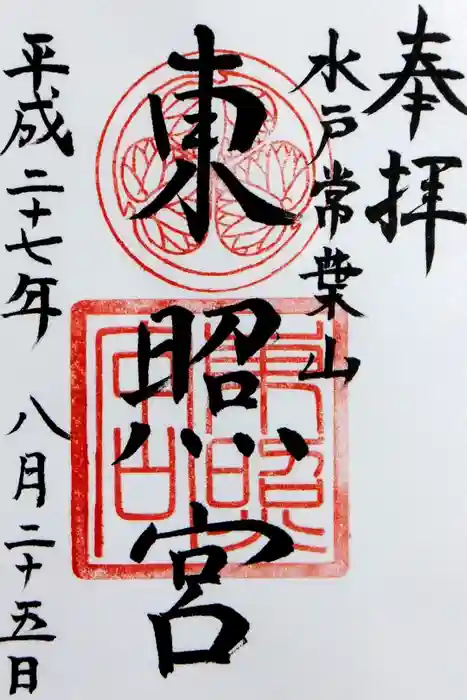 奉拝
水戸常葉山
東照宮
平成二十七年 八月二十五日
東照
宮印